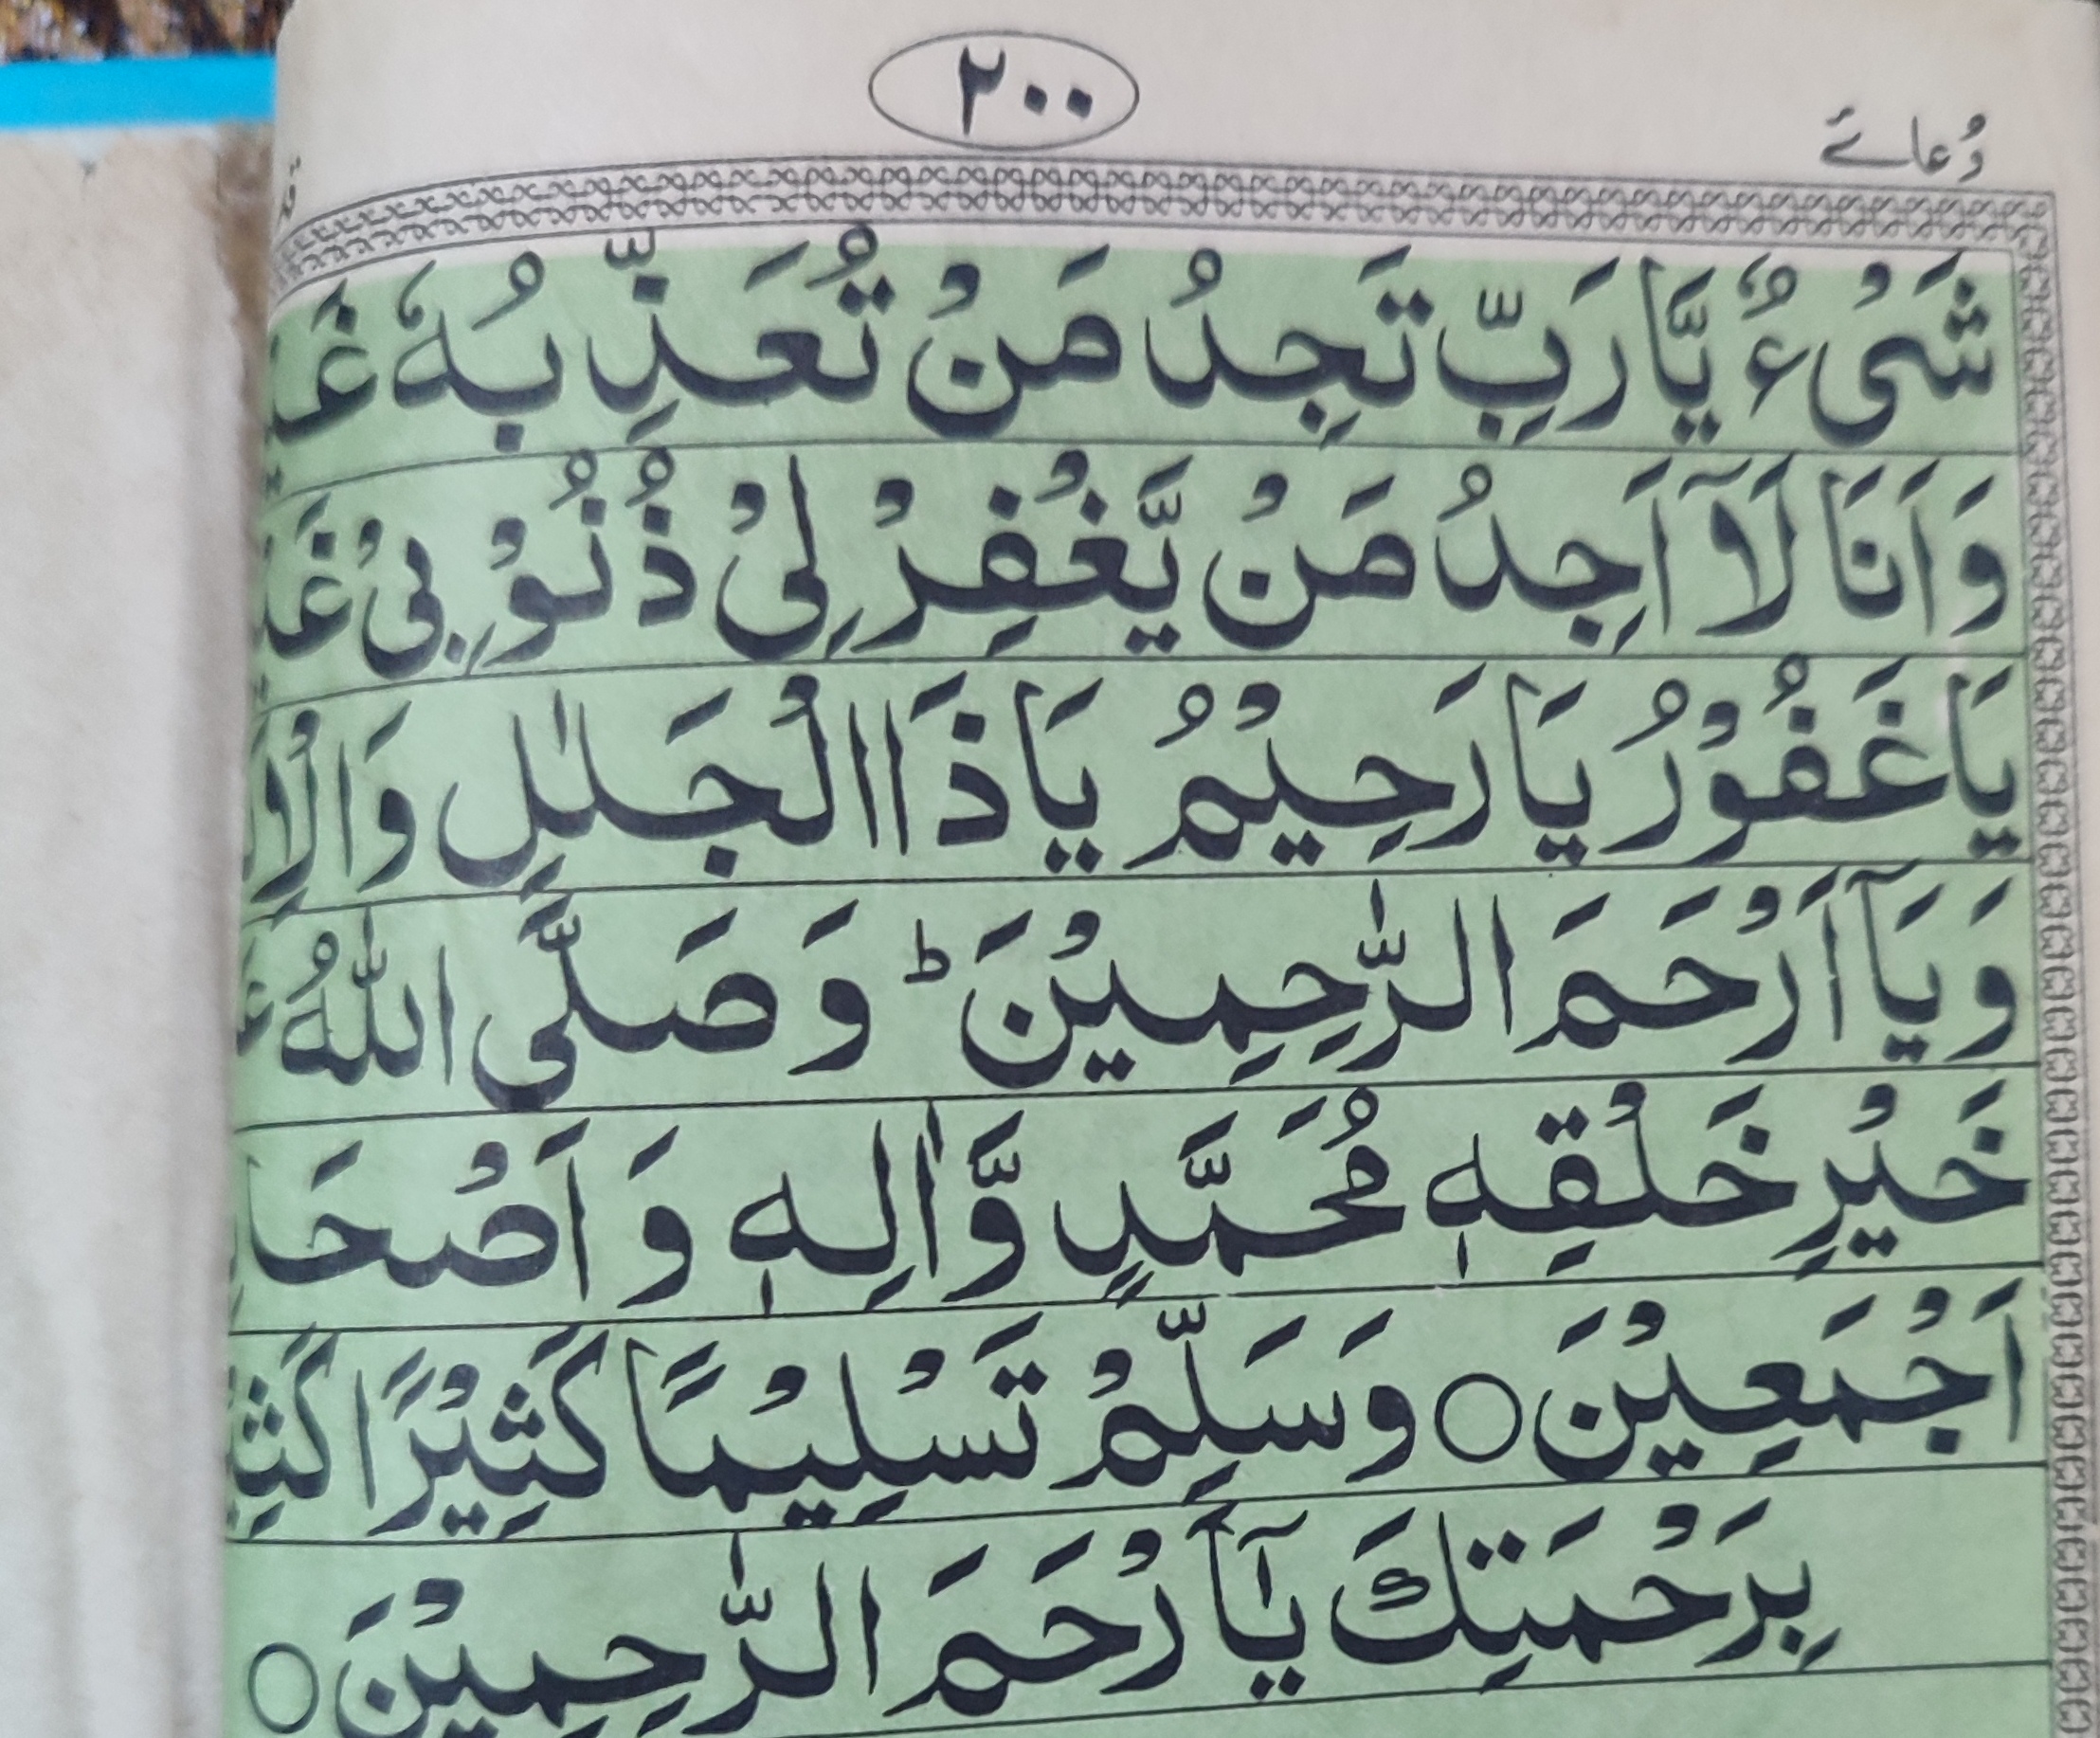 ٢٠٠
دُعائے
شَیْءٌ یَّارَبِّ تَجِدُ مَنْ تُعَذِّبُهٗ
وَاَنَا لَآ اَجِدُ مَنْ یَّغْفِرْ لِیْ ذُنُوْبِیْ
یَاغَفُوْرُ یَارَحِیْمُ یَاذَا الْجَلٰلِ
وَیَآ اَرْحَمَ الرّٰحِمِیْنَ ؕ وَصَلَّی اللّٰهُ
خَیْرِ خَلْقِهٖ مُحَمَّدٍ وَّاٰلِهٖ وَ
اَجْمَعِیْنَ ○ وَسَلِّمْ تَسْلِیْمًا کَثِیْرًا
بِرَحْمَتِكَ یَآ اَرْحَمَ الرّٰحِمِیْنَ ○